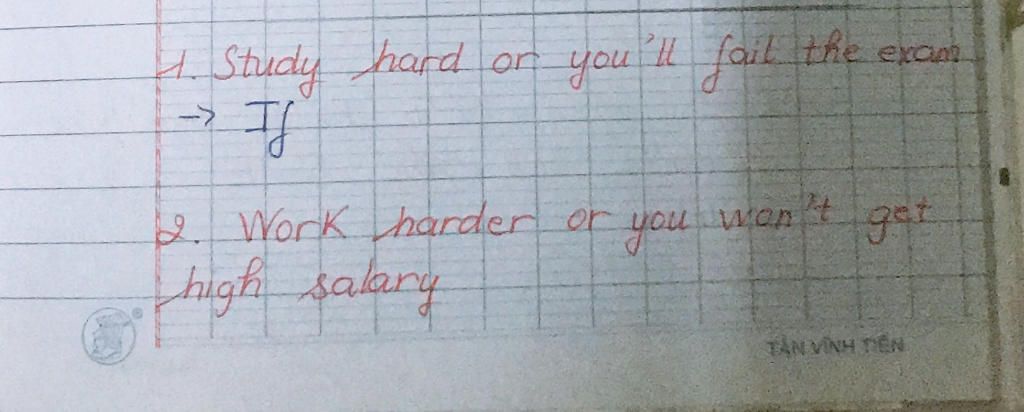 1. Study hard or you'll fail the exam
→ If
2. Work harder or you won't get
high salary
TÂN VĨNH TIẾN